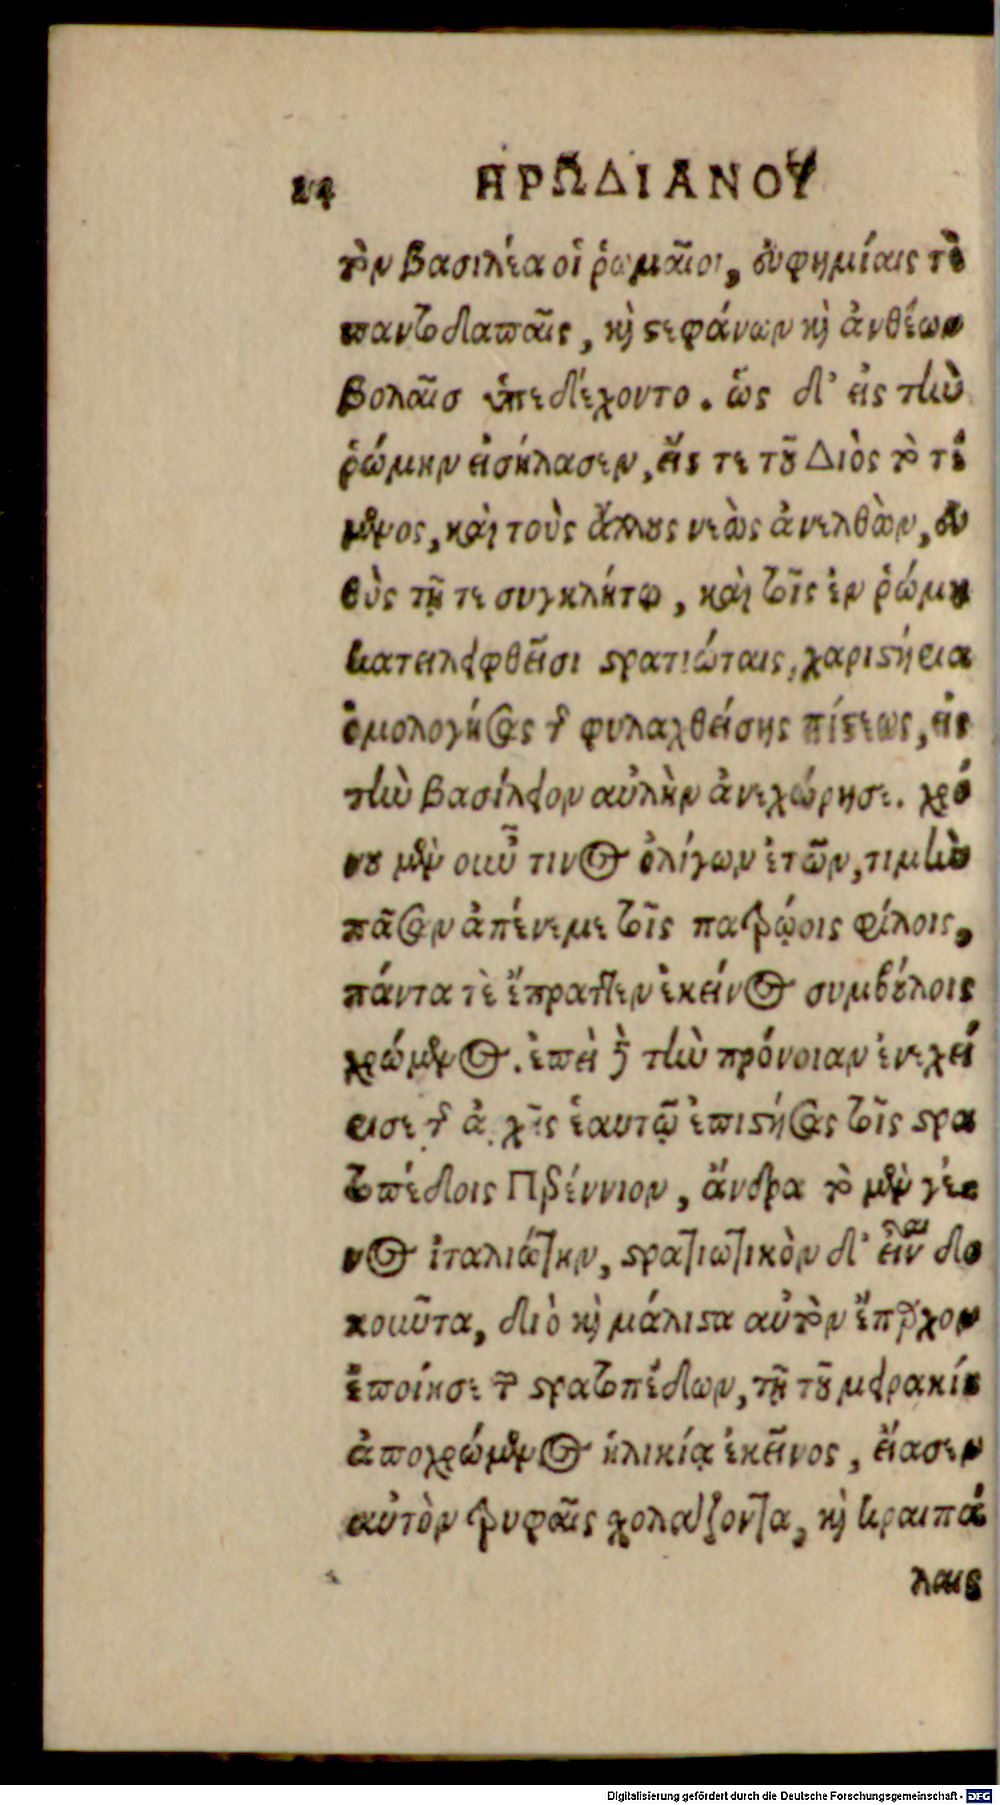 24 ἩΡΩΔΙΑΝΟΥ
τὸν βασιλέα οἱ ῥωμαῖοι, εὐφημίαις τὲ
παντοδαπαῖς, καὶ στεφάνων καὶ ἀνθέων
βολαῖσ ὑπεδέχοντο. ὡς δ' εἰς τὴν
ῥώμην εἰσήλασεν, εἴς τε τοῦ Διὸς τὸ τέ
μενος, καὶ τοὺς ἄλλους νεὼς ἀνελθὼν, εὐ
θὺς τῇ τε συγκλήτῳ, καὶ τοῖς ἐν ῥώμῃ
καταλειφθεῖσι στρατιώταις, χαριστήρια
ὁμολογήσας τῆς φυλαχθείσης πίστεως, εἰς
τὴν βασίλειον αὐλὴν ἀνεχώρησε. χρό
νου μὲν οὖν τινος ὀλίγων ἐτῶν, τιμὴν
πᾶσαν ἀπένεμε τοῖς πατρῴοις φίλοις,
πάντα τὲ ἔπραττεν ἐκείνοις συμβούλοις
χρώμενος. ἐπεὶ δὲ τὴν πρόνοιαν ἐνεχεί
ρισε τῆς ἀρχῆς ἑαυτῷ ἐπιστήσας τοῖς στρα
τοπέδοις Περέννιον, ἄνδρα τὸ μὲν γέ
νος ἰταλιώτην, στρατιωτικὸν δ' εἶναι δο
κοῦντα, διὸ καὶ μάλιστα αὐτὸν ἔπαρχον
ἐποίησε τῶν στρατοπέδων, τῇ τοῦ μειρακίου
ἀποχρώμενος ἡλικίᾳ ἐκεῖνος, εἴασεν
αὐτὸν τρυφαῖς χολάζοντα, καὶ κραιπά
λαις
Digitalisierung gefördert durch die Deutsche Forschungsgemeinschaft - DFG